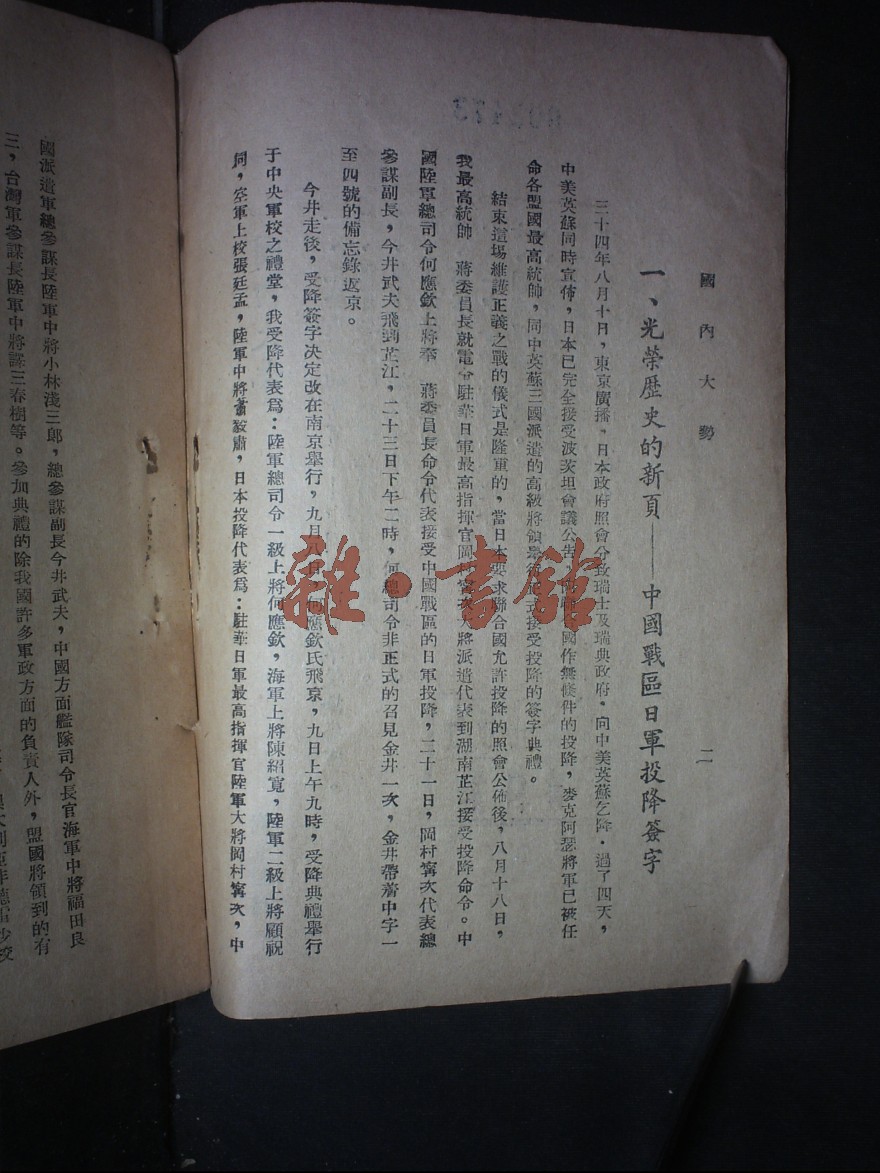 國內大勢
二
一、光榮歷史的新頁——中國戰區日軍投降簽字
三十四年八月十日，東京廣播，日本政府照會分致瑞士及瑞典政府，向中美英蘇乞降。過了四天，
中美英蘇同時宣佈，日本已完全接受波茨坦會議公告，國作無條件的投降，麥克阿瑟將軍已被任
命各盟國最高統帥，同中英蘇三國派遣的高級將領舉行正式接受投降的簽字典禮。
結束這場維護正義之戰的儀式是隆重的，當日本要求聯合國允許投降的照會公佈後，八月十八日，
我最高統帥　蔣委員長就電令駐華日軍最高指揮官岡村寧次大將派遣代表到湖南芷江接受投降命令。中
國陸軍總司令何應欽上將奉　蔣委員長命令代表接受中國戰區的日軍投降，二十一日，岡村寧次代表總
參謀副長，今井武夫飛到芷江，二十三日下午二時，何總司令非正式的召見金井一次，金井帶着中字一
至四號的備忘錄返京。
今井走後，受降簽字決定改在南京舉行，九月八日，何應欽氏飛京，九日上午九時，受降典禮舉行
于中央軍校之禮堂，我受降代表爲：陸軍總司令一級上將何應欽，海軍上將陳紹寬，陸軍二級上將顧祝
同，空軍上校張廷孟，陸軍中將蕭毅肅，日本投降代表爲：駐華日軍最高指揮官陸軍大將岡村寧次，中
國派遣軍總參謀長陸軍中將小林淺三郎，總參謀副長今井武夫，中國方面艦隊司令長官海軍中將福田良
三，台灣軍參謀長陸軍中將諫三春樹等。參加典禮的除我國許多軍政方面的負責人外，盟國將領到的有
雜·書館